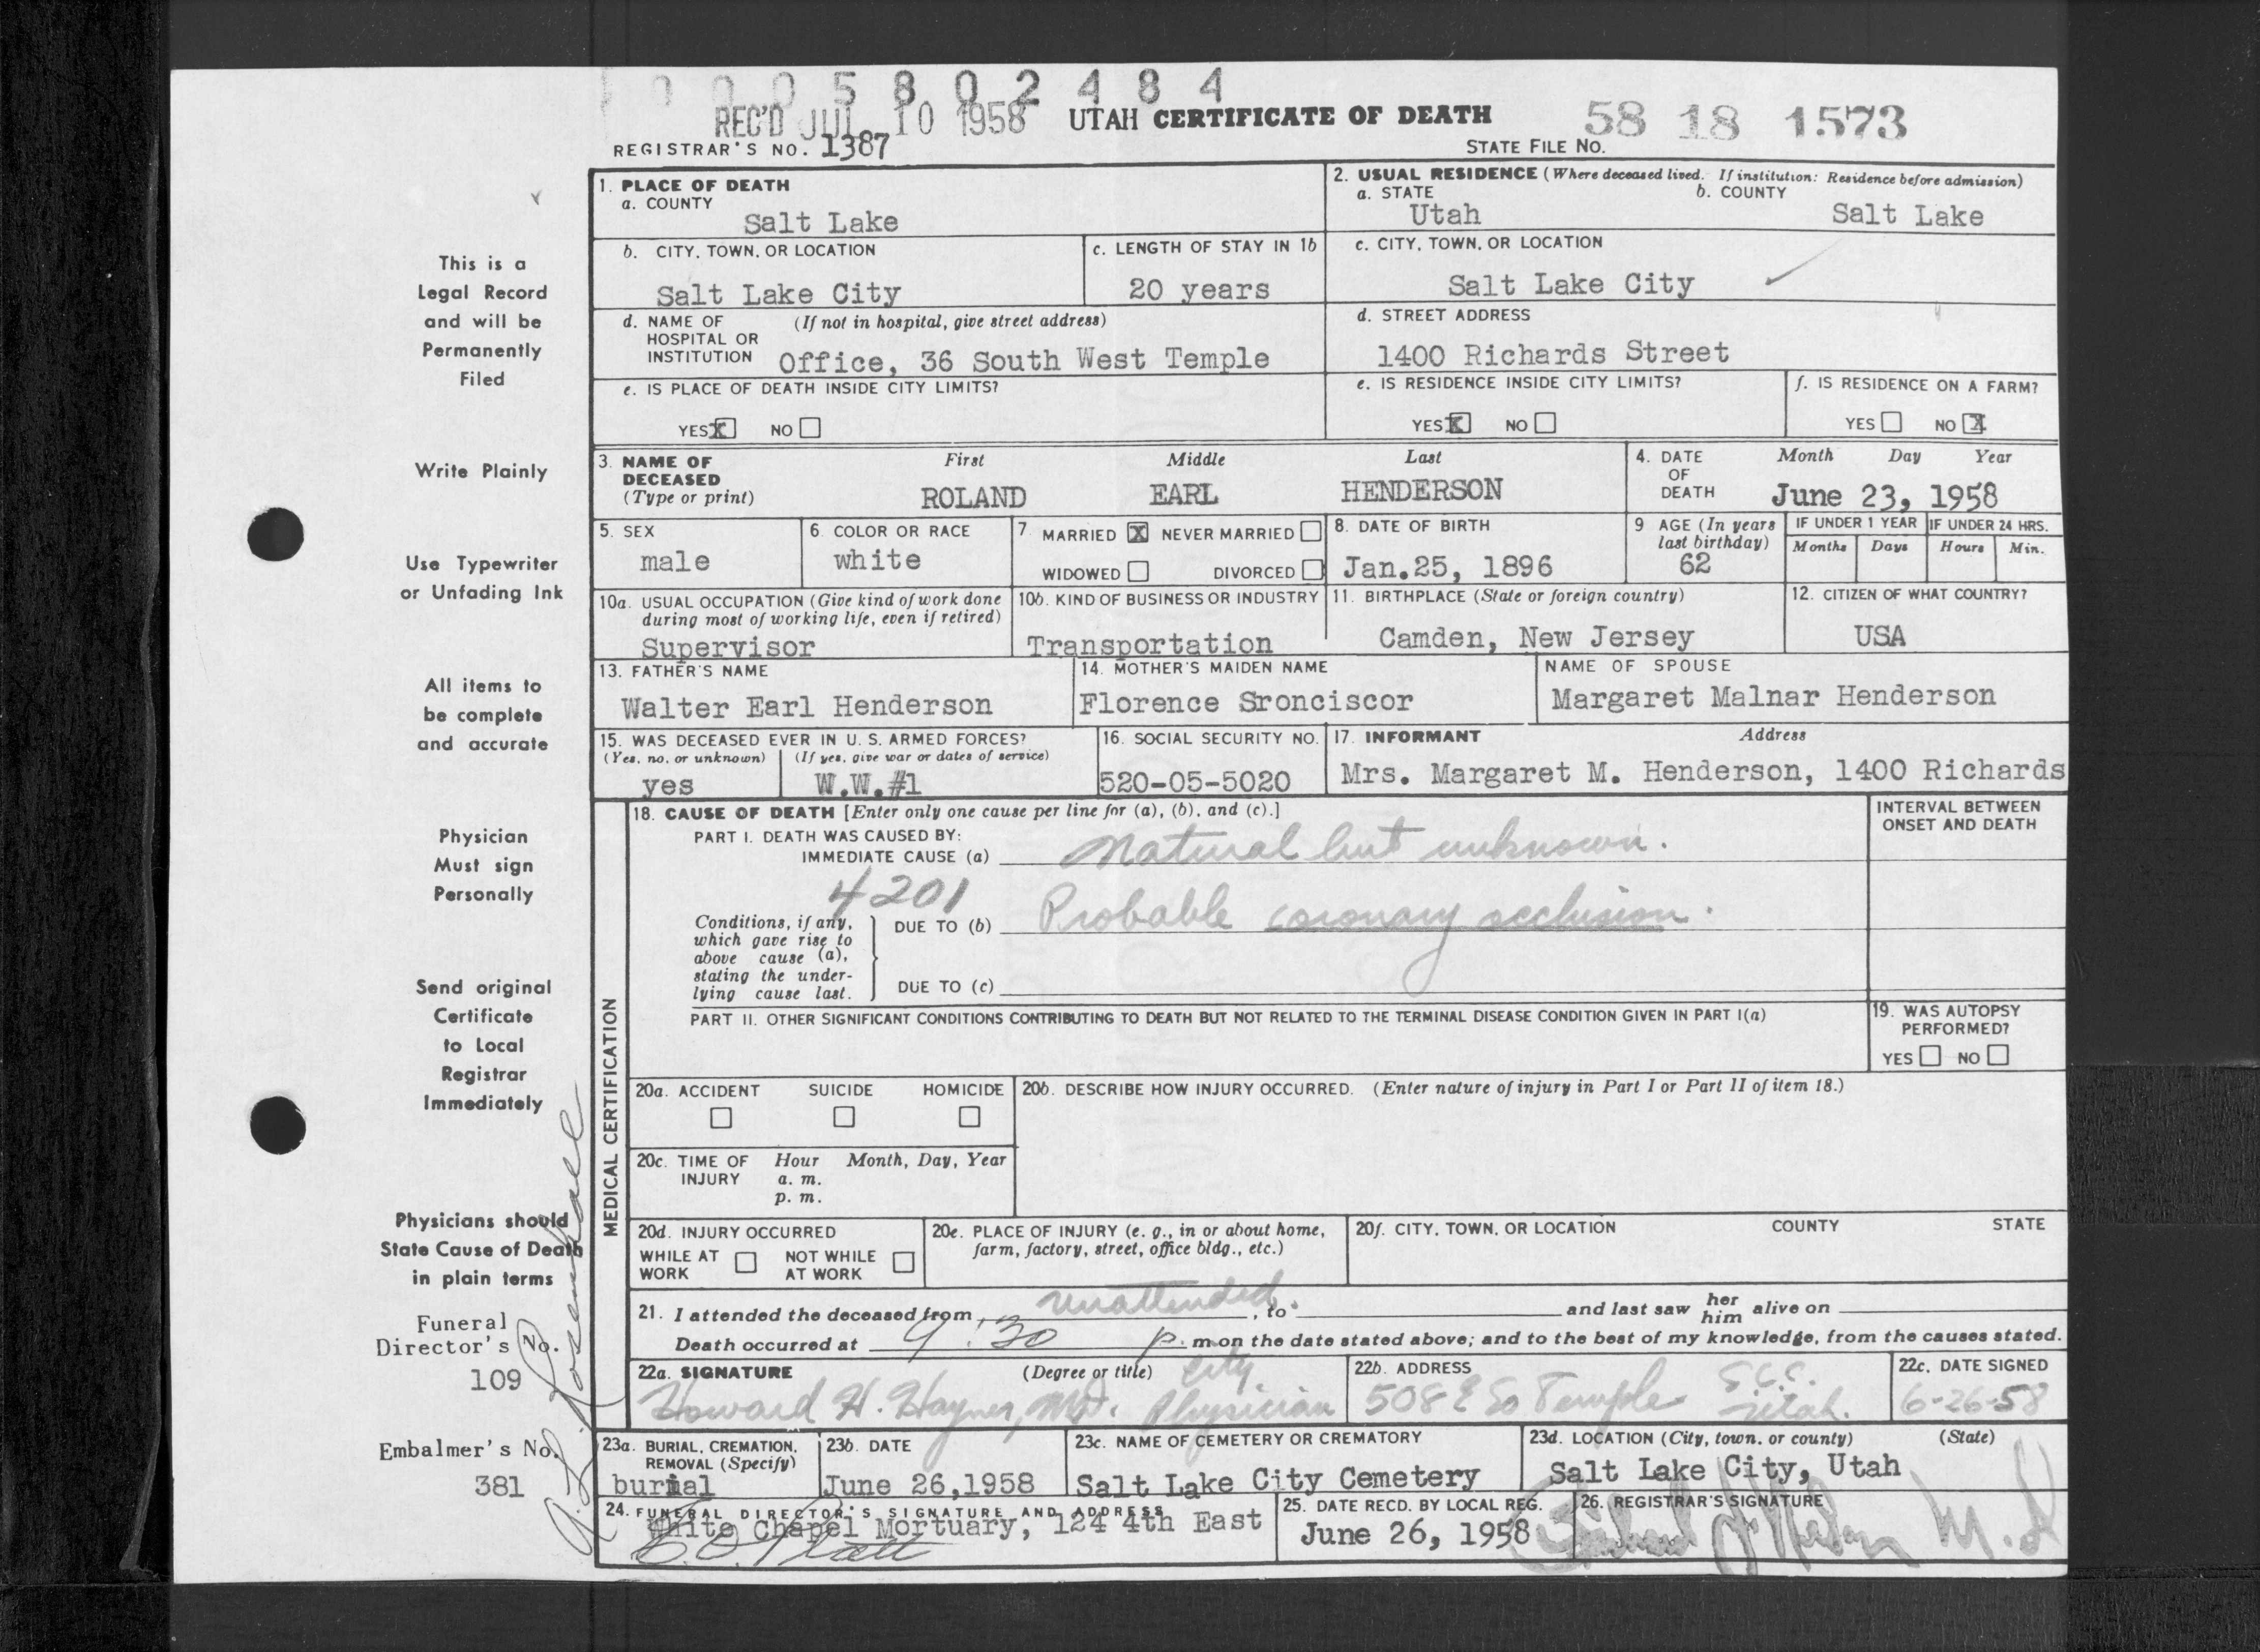 0 0 0 5 8 0 2 4 8 4
REC'D JUL 10 1958 UTAH CERTIFICATE OF DEATH 58 18 1573
REGISTRAR'S NO. 1387 STATE FILE NO.
This is a
Legal Record
and will be
Permanently
Filed
Write Plainly
Use Typewriter
or Unfading Ink
All items to
be complete
and accurate
Physician
Must sign
Personally
Send original
Certificate
to Local
Registrar
Immediately
Physicians should
State Cause of Death
in plain terms
Funeral
Director's No.
109
Embalmer's No.
381
1. PLACE OF DEATH
a. COUNTY
Salt Lake
2. USUAL RESIDENCE (Where deceased lived. If institution: Residence before admission)
a. STATE b. COUNTY
Utah Salt Lake
b. CITY, TOWN, OR LOCATION
Salt Lake City
c. LENGTH OF STAY IN 1b
20 years
c. CITY, TOWN, OR LOCATION
Salt Lake City
d. NAME OF (If not in hospital, give street address)
HOSPITAL OR
INSTITUTION Office, 36 South West Temple
d. STREET ADDRESS
1400 Richards Street
e. IS PLACE OF DEATH INSIDE CITY LIMITS?
YES X NO
e. IS RESIDENCE INSIDE CITY LIMITS?
YES X NO
f. IS RESIDENCE ON A FARM?
YES NO X
3. NAME OF First Middle Last
DECEASED
(Type or print) ROLAND EARL HENDERSON
4. DATE Month Day Year
OF
DEATH June 23, 1958
5. SEX
male
6. COLOR OR RACE
white
7. MARRIED X NEVER MARRIED
WIDOWED DIVORCED
8. DATE OF BIRTH
Jan.25, 1896
9 AGE (In years
last birthday)
62
IF UNDER 1 YEAR IF UNDER 24 HRS.
Months Days Hours Min.
10a. USUAL OCCUPATION (Give kind of work done
during most of working life, even if retired)
Supervisor
10b. KIND OF BUSINESS OR INDUSTRY
Transportation
11. BIRTHPLACE (State or foreign country)
Camden, New Jersey
12. CITIZEN OF WHAT COUNTRY?
USA
13. FATHER'S NAME
Walter Earl Henderson
14. MOTHER'S MAIDEN NAME
Florence Sronciscor
NAME OF SPOUSE
Margaret Malnar Henderson
15. WAS DECEASED EVER IN U. S. ARMED FORCES?
(Yes, no, or unknown) (If yes, give war or dates of service)
yes W.W.#1
16. SOCIAL SECURITY NO.
520-05-5020
17. INFORMANT Address
Mrs. Margaret M. Henderson, 1400 Richards
MEDICAL CERTIFICATION
18. CAUSE OF DEATH [Enter only one cause per line for (a), (b), and (c).]
INTERVAL BETWEEN
ONSET AND DEATH
PART I. DEATH WAS CAUSED BY:
IMMEDIATE CAUSE (a) Natural but unknown.
4201
Conditions, if any,
which gave rise to
above cause (a),
stating the under-
lying cause last.
DUE TO (b) Probable coronary occlusion.
DUE TO (c)
PART II. OTHER SIGNIFICANT CONDITIONS CONTRIBUTING TO DEATH BUT NOT RELATED TO THE TERMINAL DISEASE CONDITION GIVEN IN PART I(a)
19. WAS AUTOPSY
PERFORMED?
YES NO
20a. ACCIDENT SUICIDE HOMICIDE
20b. DESCRIBE HOW INJURY OCCURRED. (Enter nature of injury in Part I or Part II of item 18.)
20c. TIME OF Hour Month, Day, Year
INJURY a. m.
p. m.
20d. INJURY OCCURRED
WHILE AT NOT WHILE
WORK AT WORK
20e. PLACE OF INJURY (e. g., in or about home,
farm, factory, street, office bldg., etc.)
20f. CITY, TOWN, OR LOCATION COUNTY STATE
21. I attended the deceased from unattended. , to and last saw her him alive on
Death occurred at 9:30 p. m on the date stated above; and to the best of my knowledge, from the causes stated.
22a. SIGNATURE (Degree or title) City
Howard H. Haynes, M.D. Physician
22b. ADDRESS
508 E So Temple S.L.C. Utah.
22c. DATE SIGNED
6-26-58
23a. BURIAL, CREMATION,
REMOVAL (Specify)
burial
23b. DATE
June 26,1958
23c. NAME OF CEMETERY OR CREMATORY
Salt Lake City Cemetery
23d. LOCATION (City, town, or county) (State)
Salt Lake City, Utah
24. FUNERAL DIRECTOR'S SIGNATURE AND ADDRESS
White Chapel Mortuary, 124 4th East
25. DATE RECD. BY LOCAL REG.
June 26, 1958
26. REGISTRAR'S SIGNATURE
M.D.